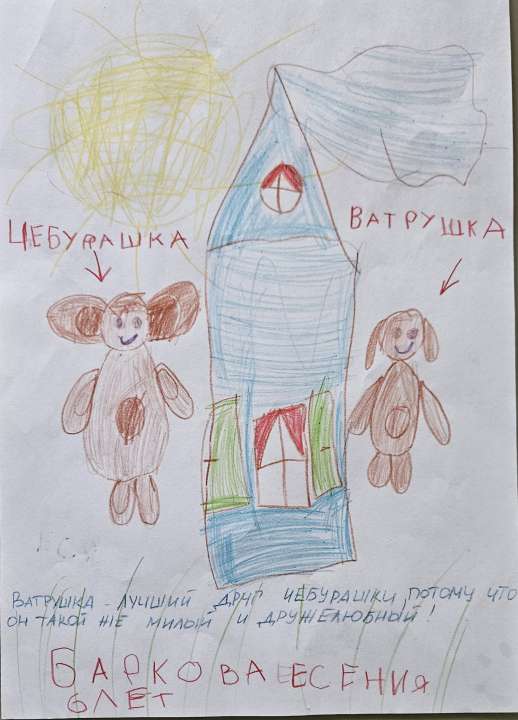 ЧЕБУРАШКА
ВАТРУШКА
ВАТРУШКА - ЛУЧШИЙ ДРУГ ЧЕБУРАШКИ, ПОТОМУ ЧТО
ОН ТАКОЙ ЖЕ МИЛЫЙ И ДРУЖЕЛЮБНЫЙ!
БАРКОВА ЕСЕНИЯ
6 ЛЕТ